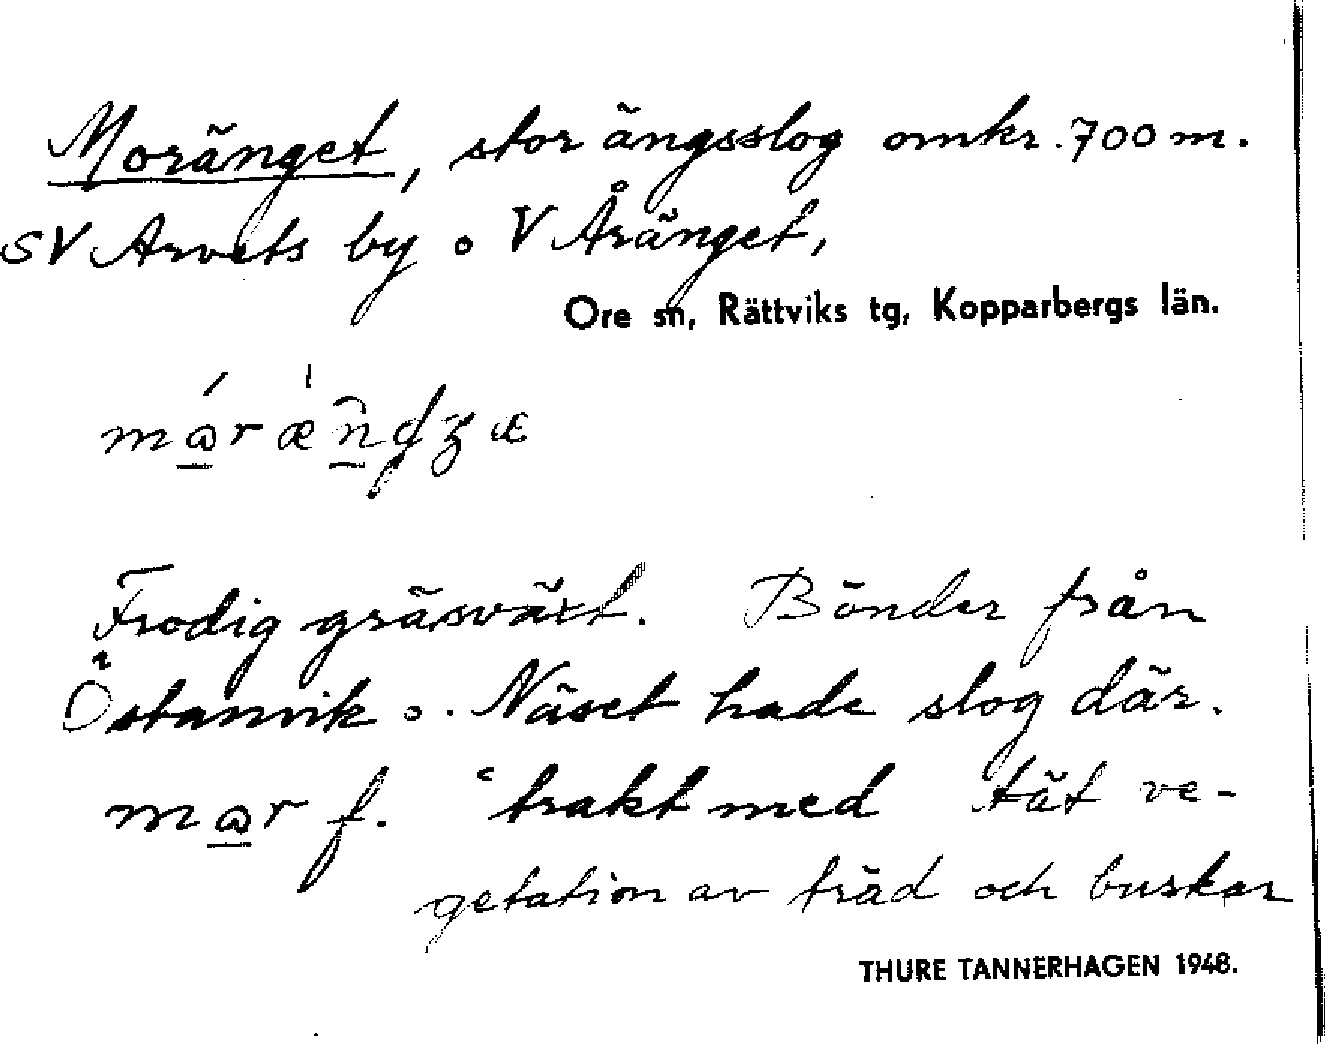 Moränget, stor ängsslog omkr. 700 m.
SV Arvets by o V Åränget,
Ore sn, Rättviks tg, Kopparbergs län.
Frodig gräsväxt. Bönder från
Östanvik o. Näset hade slog där.
f. trakt med tät ve-
getation av träd och buskar
THURE TANNERHAGEN 1948.